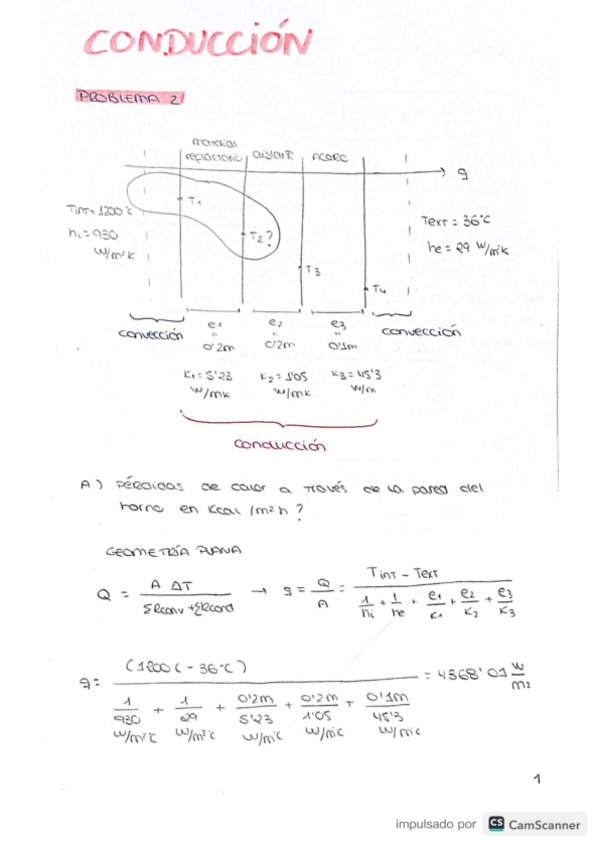 CONDUCCIÓN
PROBLEMA 2
material
refractario aislant. ACERO
q
TINT = 1200°C
hi = 930
W/m²K
T1
T2?
T3
T4
TEXT = 36°C
he = 29 W/m²K
convección
e1 e2 e3 convección
" " "
0'2m 0'2m 0'1m
K1 = 5'23 K2 = 1'05 K3 = 45'3
W/mK W/mK W/m
conducción
A) Pérdidas de calor a través de la pared del
horno en Kcal/m²h?
GEOMETRÍA PLANA
Q = A ΔT / ΣRconv + ΣRcond → q = Q / A = TINT - TEXT / 1/hi + 1/he + e1/K1 + e2/K2 + e3/K3
q = (1200C - 36°C) / 1/930 W/m²°C + 1/29 W/m²°C + 0'2m/5'23 W/m°C + 0'2m/1'05 W/m°C + 0'1m/45'3 W/m°C = 4368'01 W/m²
1
impulsado por CS CamScanner